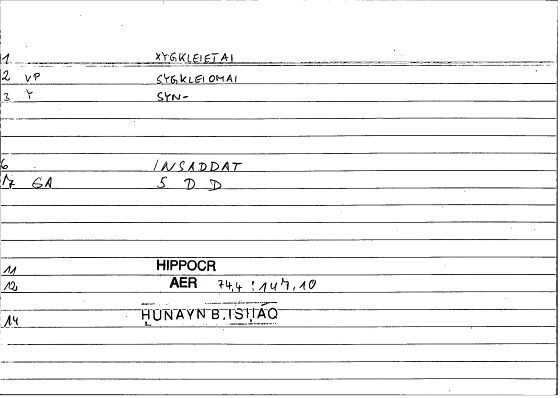 1 XYGKLEIETAI
2 VP SYGKLEIOMAI
3 Y SYN-
6 INSADDAT
17 GA S D D
11 HIPPOCR
12 AER 74,4 : 147,10
14 HUNAYN B. ISHAQ